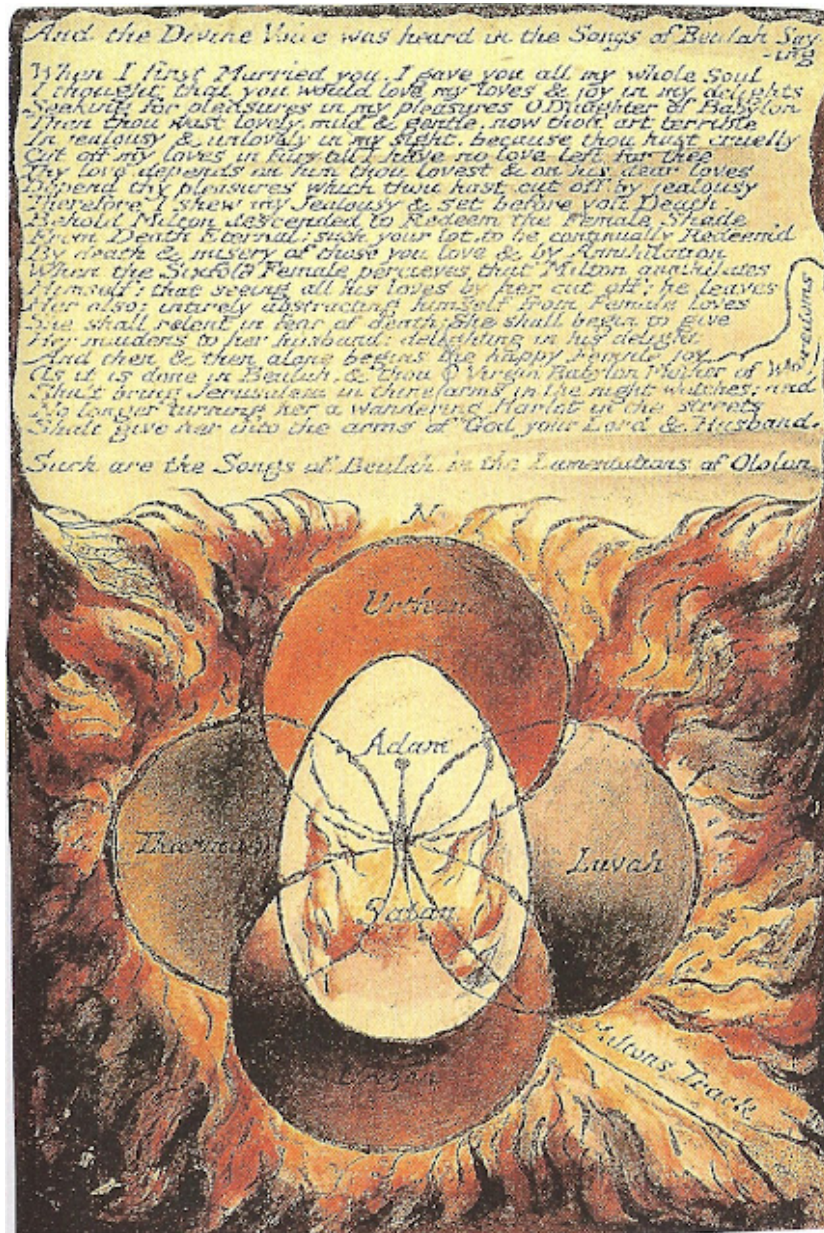 And the Divine Voice was heard in the Songs of Beulah Say-
-ing
When I first Married you, I gave you all my whole Soul
I thought that you would love my loves & joy in my delights
Seeking for pleasures in my pleasures O Daughter of Babylon
Then thou wast lovely, mild & gentle. now thou art terrible
In jealousy & unlovely in my sight, because thou hast cruelly
Cut off my loves in fury till I have no love left for thee
Thy love depends on him thou lovest & on his dear loves
Depend thy pleasures which thou hast cut off by jealousy
Therefore I shew my Jealousy & set before you Death.
Behold Milton descended to Redeem the Female Shade
From Death Eternal; such your lot, to be continually Redeem'd
By death & misery of those you love & by Annihilation
When the Sixfold Female percieves that Milton annihilates
Himself: that seeing all his loves by her cut off: he leaves
Her also: intirely abstracting himself from Female loves
She shall relent in fear of death: She shall begin to give
Her maidens to her husband: delighting in his delight
And then & then alone begins the happy Female joy
As it is done in Beulah, & thou O Virgin Babylon Mother of Whoredoms
Shalt bring Jerusalem in thine arms in the night watches; and
No longer turning her a wandering Harlot in the streets
Shalt give her into the arms of God your Lord & Husband.
Such are the Songs of Beulah in the Lamentations of Ololon
N
Urthona
Adam
Tharmas
Luvah
Satan
Urizen
Miltons Track